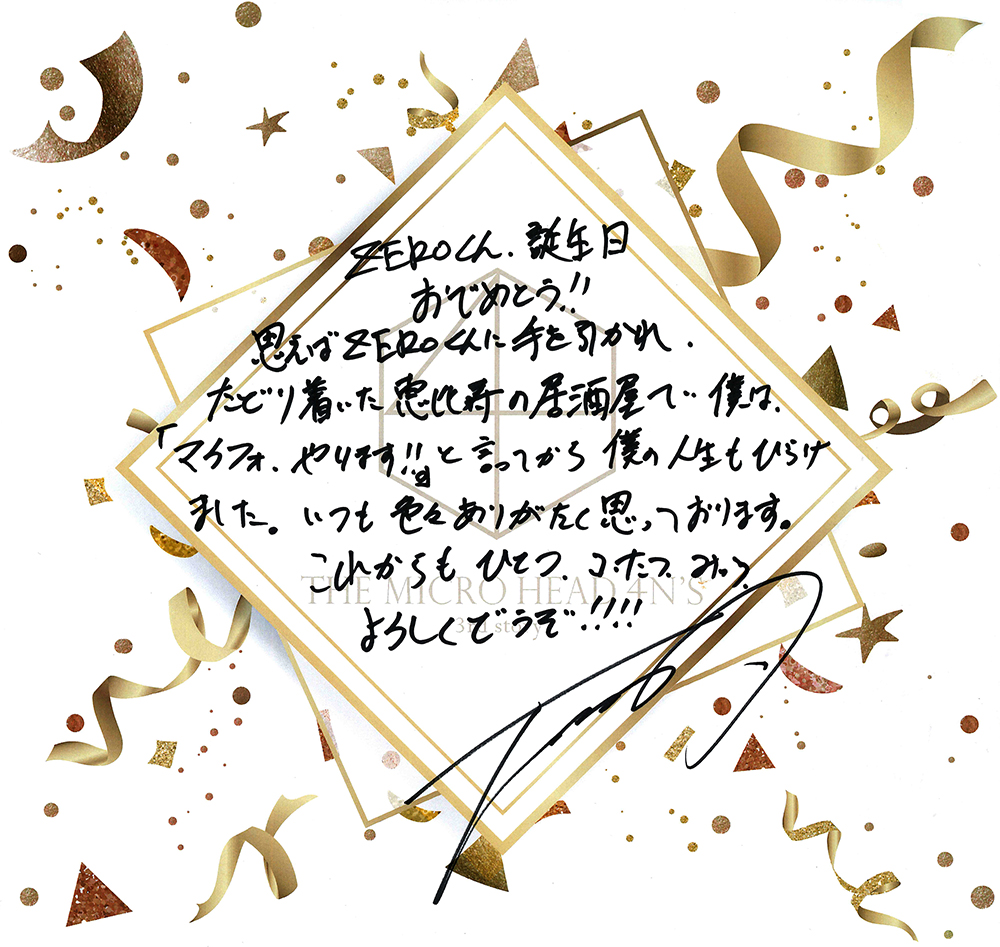 ZEROくん、誕生日
おでめとう!!
思えばZEROくんに手を引かれ、
たどり着いた恵比寿の居酒屋で僕は、
「マイフォ、やります!!」と言ってから僕の人生もひらけ
ました。いつも色々ありがたく思っております。
これからもひとつ、コたつ、みっつ
THE MICRO HEAD 4N'S
よろしくどうぞ!!!!
3rd story